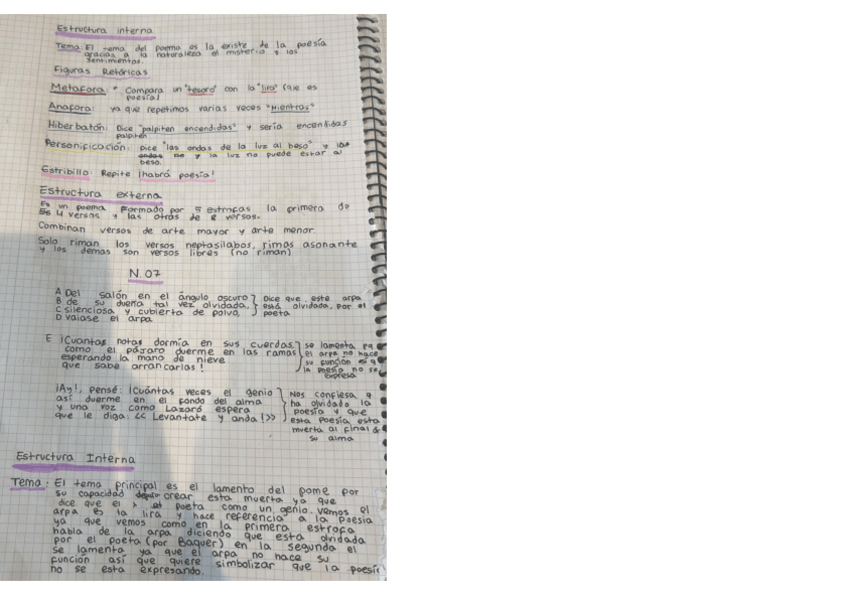 Estructura interna
Tema: El tema del poema es la existe. de la poesía
gracias a la naturaleza el misterio y los
sentimientos.
Figuras Retóricas
Metafora: Compara un "tesoro" con la "lira" (que es
poesía)
Anafora: ya que repetimos varias veces "Mientras"
Hiberbatón: Dice "palpiten encendidas" y sería encendidas
palpiten
Personificación: Dice "las ondas de la luz al beso" y las
ondas no y la luz no puede estar al
beso.
Estribillo: Repite ¡habrá poesía!
Estructura externa
Es un poema formado por 5 estrofas la primera de
4 versos y las otras de 8 versos.
Combinan versos de arte mayor y arte menor
Solo riman los versos heptasílabos, rimas asonante
y los demas son versos libres (no riman)
N. 07
A Del salón en el ángulo oscuro
B de su dueña tal vez olvidada,
C silenciosa y cubierta de polvo,
D vaiase el arpa
Dice que este arpa
está olvidada, por el
poeta
E ¡Cuantas notas dormía en sus cuerdas
como el pájaro duerme en las ramas
esperando la mano de nieve
que sabe arrancarlas!
se lamenta
el arpa no hace
su función
la poesía no se
expresa
¡Ay!, pensé: ¡Cuántas veces el genio
así duerme en el fondo del alma
y una voz como Lazaró espera
que le diga: << Levantate y anda!>>
Nos confiesa q
ha olvidado la
poesía y que
esta poesía esta
muerta al final d
su alma
Estructura Interna
Tema: El tema principal es el lamento del pome por
su capacidad crear esta muerta ya que
dice que el poeta como un genio. Vemos el
arpa es la lira y hace referencia a la Poesia
ya que vemos como en la primera estrofa
habla de la arpa diciendo que esta olvidada
por el poeta (por Baquer) en la segunda el
se lamenta ya que el arpa no hace su
función así que quiere simbolizar que la poesía
no se esta expresando.